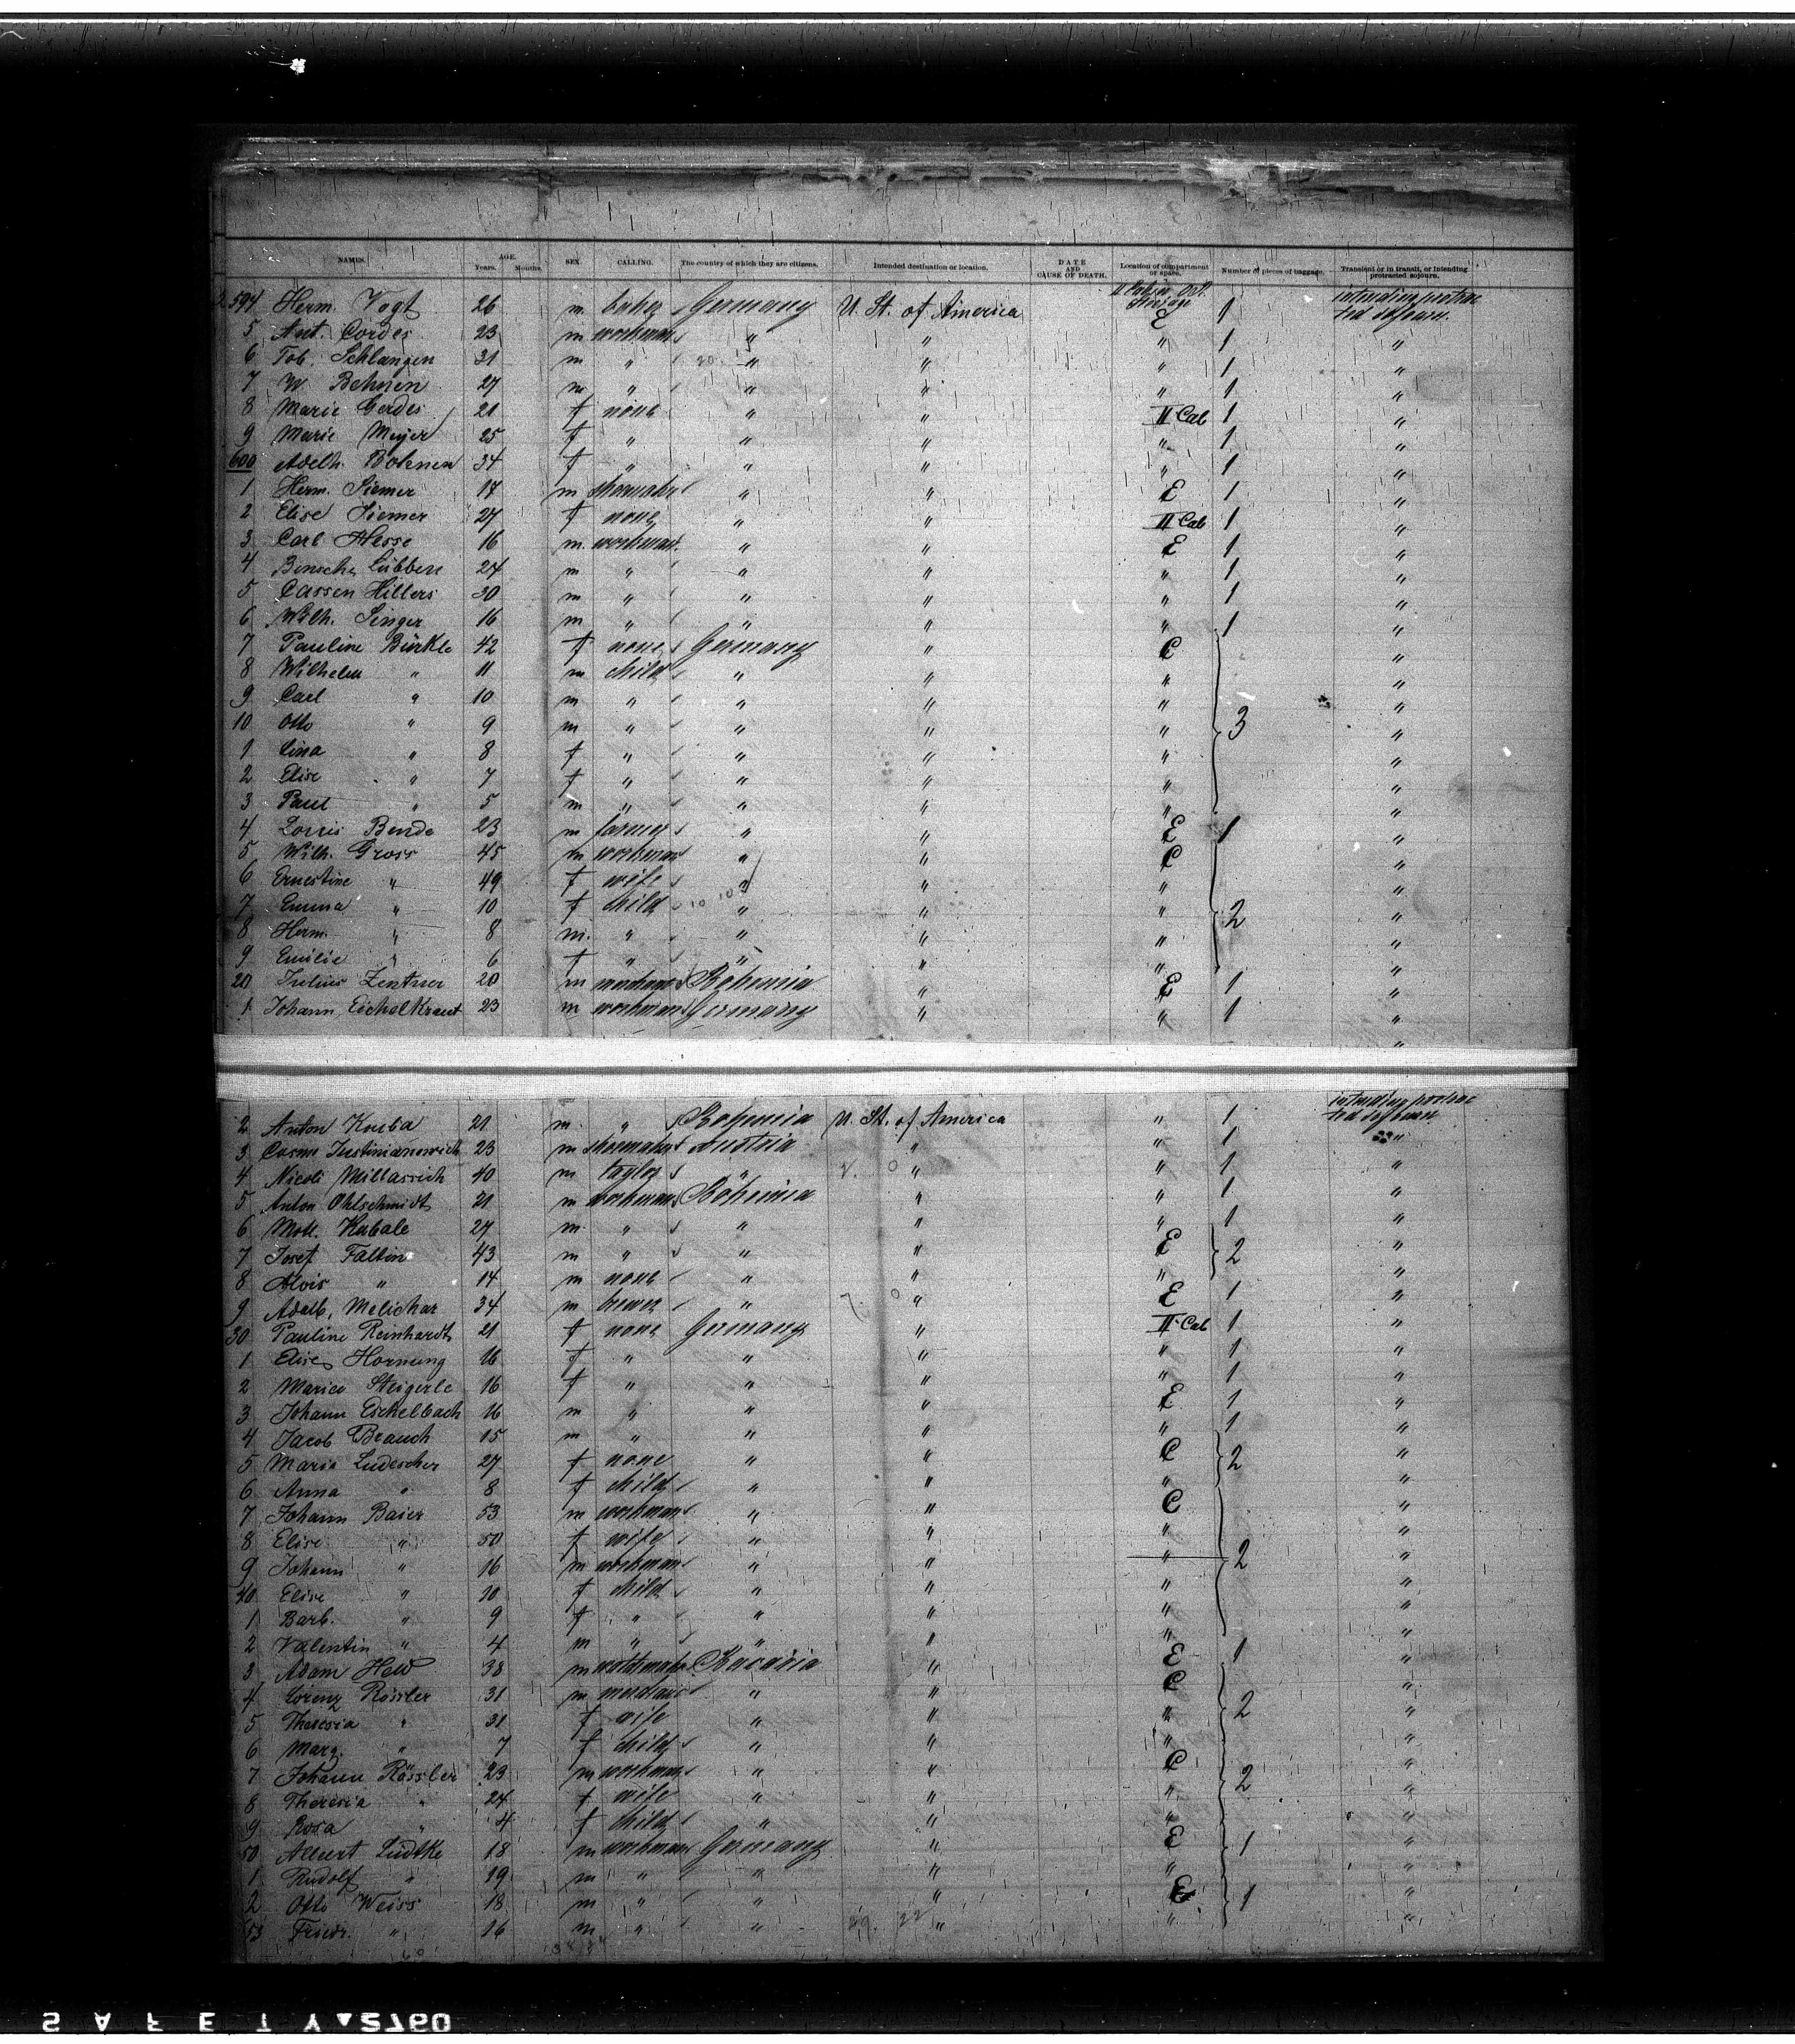 NAMES. AGE. Years. Months. SEX. CALLING. The country of which they are citizens. Intended destination or location. DATE AND CAUSE OF DEATH. Location of compartment or space. Number of pieces of baggage. Transient or in transit, or intending protracted sojourn.
594 Herm. Vogt 26 m. baker Germany U. St. of America E 1 intending protracted sojourn.
5 Ant. Cordes 23 m workman " " " 1 "
6 Tob. Schlangen 31 m " " " " 1 "
7 W. Behnen 27 m " " " " 1 "
8 Marie Gerdes 21 f none " " II Cab 1 "
9 Marie Meyer 25 f " " " " 1 "
600 Adelh. Bohnen 34 f " " " " 1 "
1 Herm. Siemer 17 m shoemaker " " E 1 "
2 Elise Siemer 27 f none " " II Cab 1 "
3 Carl Hesse 16 m. workman " " E 1 "
4 Lübben 24 m " " " " 1 "
5 Cassen Hillers 30 m " " " " 1 "
6 Wilh. Singer 16 m " " " " 1 "
7 Pauline Bürkle 42 f none Germany " C 3 "
8 Wilhelm " 11 m child " " " "
9 Carl " 10 m " " " " "
10 Otto " 9 m " " " " "
1 Lina " 8 f " " " " "
2 Elise " 7 f " " " " "
3 Paul " 5 m " " " " "
4 Louis Bende 23 m farmer " " E 1 "
5 Wilh. Gross 45 m workman " " C 2 "
6 Ernestine " 49 f wife " " " "
7 Emma " 10 f child " " " "
8 Herm. " 8 m. " " " " "
9 Emilie " 6 f " " " " "
20 Julius Zentner 20 m Böhemia " E 1 "
1 Johann Eichelkraut 23 m workman Germany " " 1 "
2 Anton Kouba 21 m. " Bohemia U. St. of America " 1 intending protracted sojourn.
3 Cosme Justinianowich 23 m shoemaker Austria " " 1 "
4 Nicoli Millassich 40 m taylor " " " 1 "
5 Anton Ohlschmidt 21 m workman Böhemia " " 1 "
6 Kubale 27 m. " " " " 1 "
7 Josef Faltin 43 m " " " E 2 "
8 Alois " 14 m none " " " "
9 Adalb. Melichar 34 m brewer " " E 1 "
30 Pauline Reinhardt 21 f none Germany " II Cab 1 "
1 Elise Hornung 16 f " " " " 1 "
2 Marie Steigerle 16 f " " " " 1 "
3 Johann Eschelbach 16 m " " " E 1 "
4 Jacob Brauch 15 m " " " " 1 "
5 Maria Ludescher 27 f none " " C 2 "
6 Anna " 8 f child " " " "
7 Johann Baier 53 m workman " " C 2 "
8 Elise " 50 f wife " " " "
9 Johann " 16 m workman " " " "
40 Elise " 10 f child " " " "
1 Barb. " 9 f " " " " "
2 Valentin " 4 m " " " " "
3 Adam 38 m Bavaria " E 1 "
4 Lorenz Rössler 31 m " " C 2 "
5 Theresia " 31 f wife " " " "
6 Marg. " 7 f child " " " "
7 Johann Rössler 23 m workman " " C 2 "
8 Theresia " 24 f wife " " " "
9 Rosa " 4 f child " " " "
50 Albert Lüdtke 18 m workman Germany " E 1 "
1 Rudolf " 19 m " " " " "
2 Otto Weiss 18 m " " " E 1 "
53 Friedr. " 16 m " " " " "
SAFETY▲2760